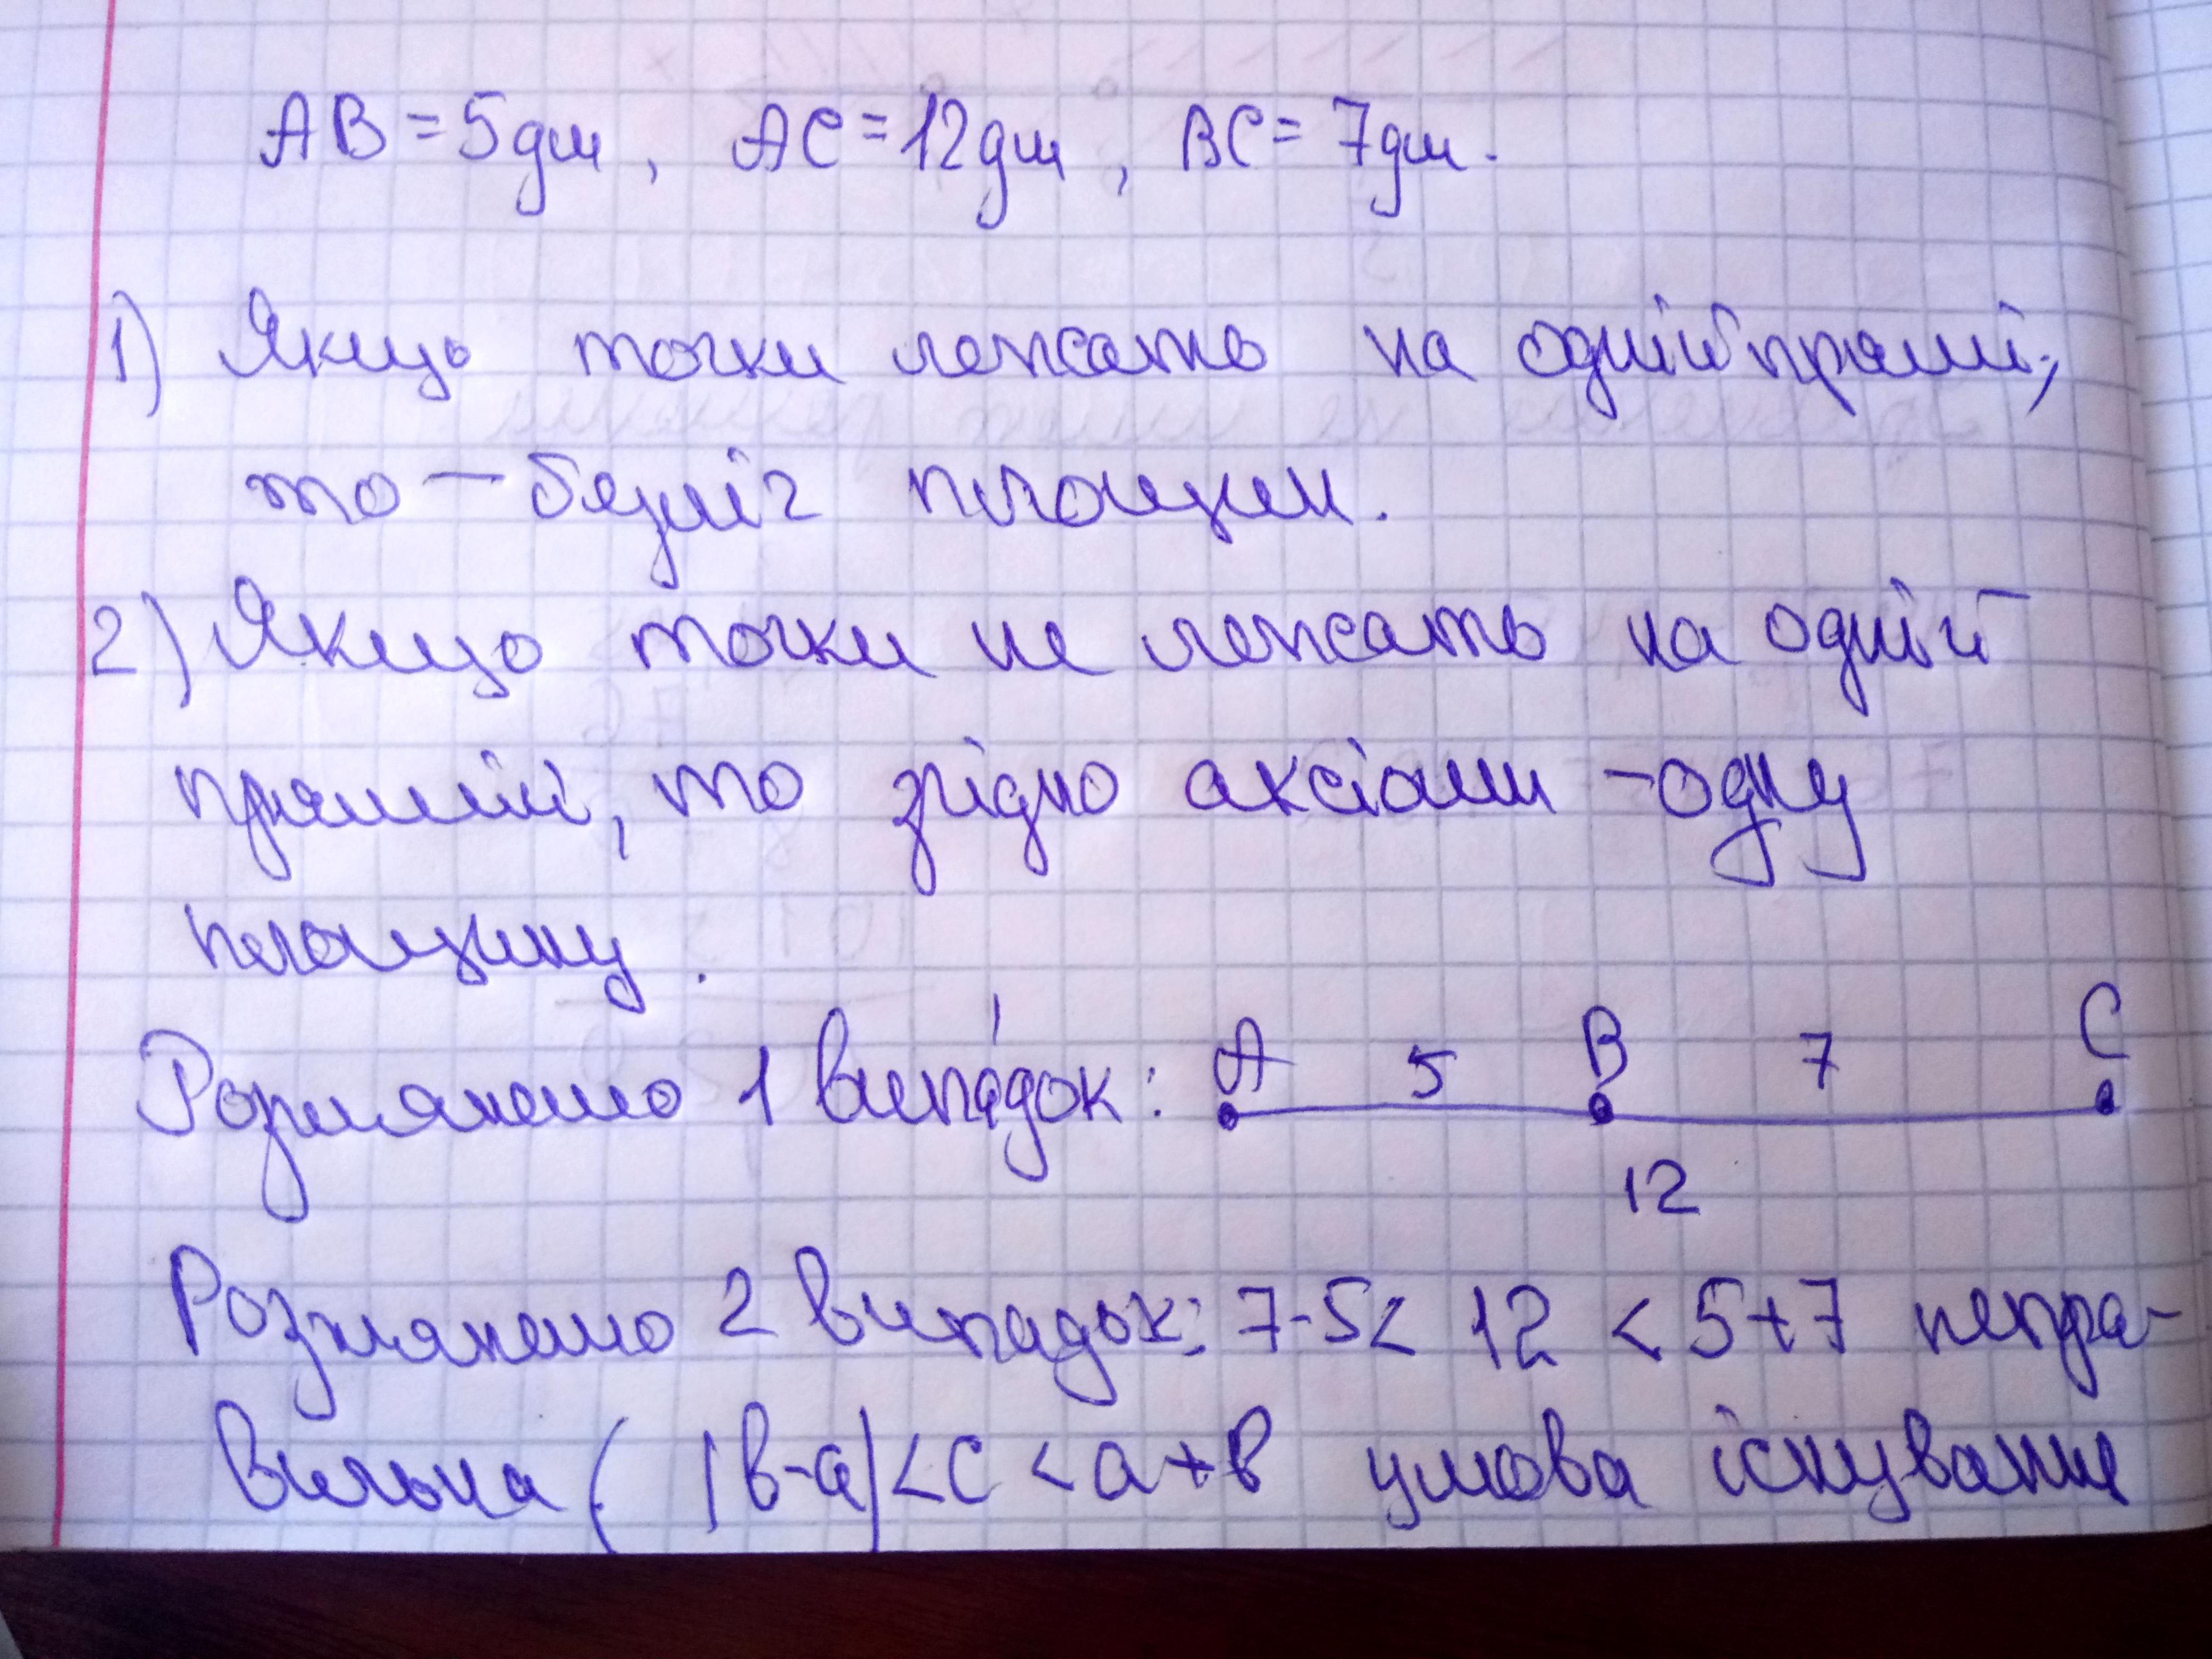 AB = 5дм, AC = 12дм, BC = 7дм.
1) Якщо точки лежать на одній прямій,
то – безліч площин.
2) Якщо точки не лежать на одній
прямій, то згідно аксіоми – одну
площину.
Розглянемо 1 випадок: A 5 B 7 C
12
Розглянемо 2 випадок: 7-5 < 12 < 5+7 непра-
вильна ( |в-а| < с < а+в умова існування